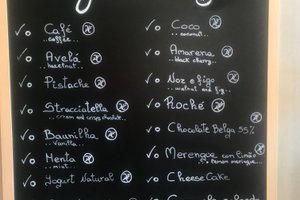 Café
..coffee..
Avelã
..hazelnut..
Pistache
Stracciatella
..cream and crispy chocolate..
Baunilha
..Vanilla..
Menta
..mint..
Yogurt Natural
Coco
..coconut..
Amarena
..black cherry..
Noz e figo
..walnut and fig..
Roché
Chocolate Belga 55%
Merengue com limão
..lemon meringue..
Cheese Cake